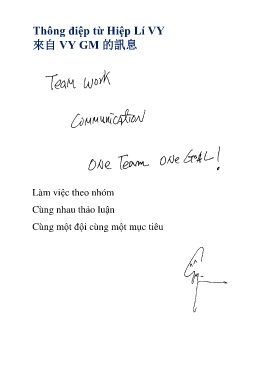 Thông điệp từ Hiệp Lí VY
來自 VY GM 的訊息
TEAM WORK
COMMUNICATION
ONE TEAM ONE GOAL!
Làm việc theo nhóm
Cùng nhau thảo luận
Cùng một đội cùng một mục tiêu